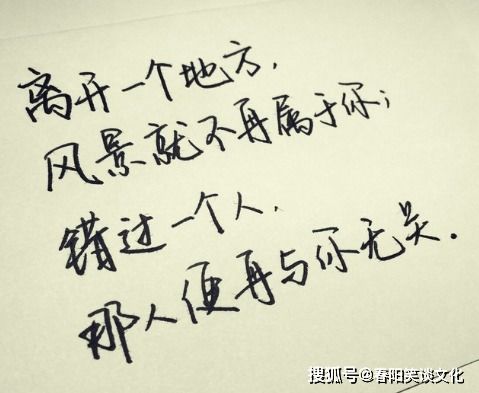 离开一个地方,
风景就不再属于你;
错过一个人,
那人便再与你无关.
搜狐号@春阳笑谈文化